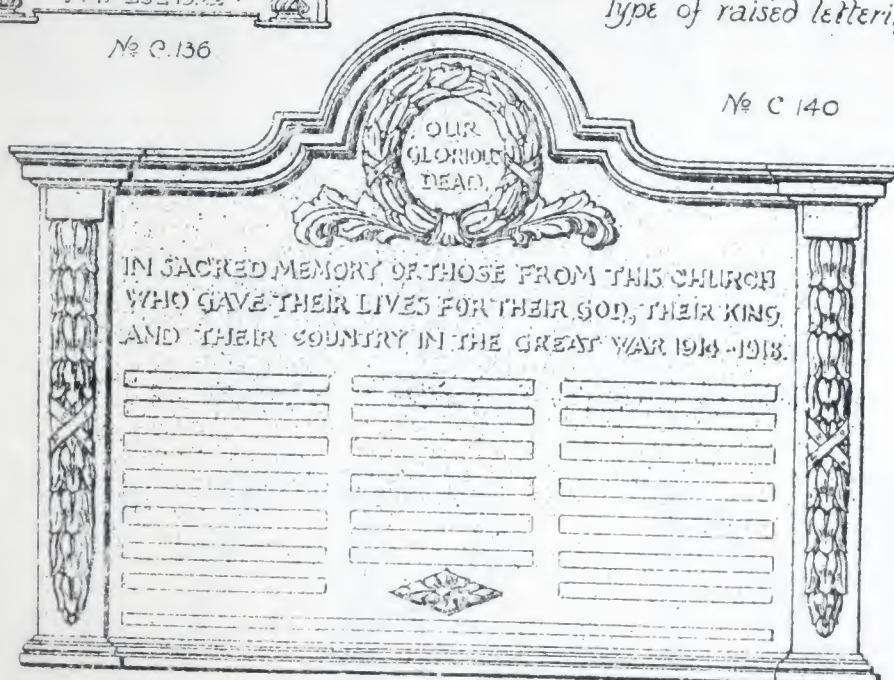 Type of raised
No C.136
No C 140
OUR
GLORIOUS
DEAD.
IN SACRED MEMORY OF THOSE FROM THIS CHURCH
WHO GAVE THEIR LIVES FOR THEIR GOD, THEIR KING
AND THEIR COUNTRY IN THE GREAT WAR 1914-1918.